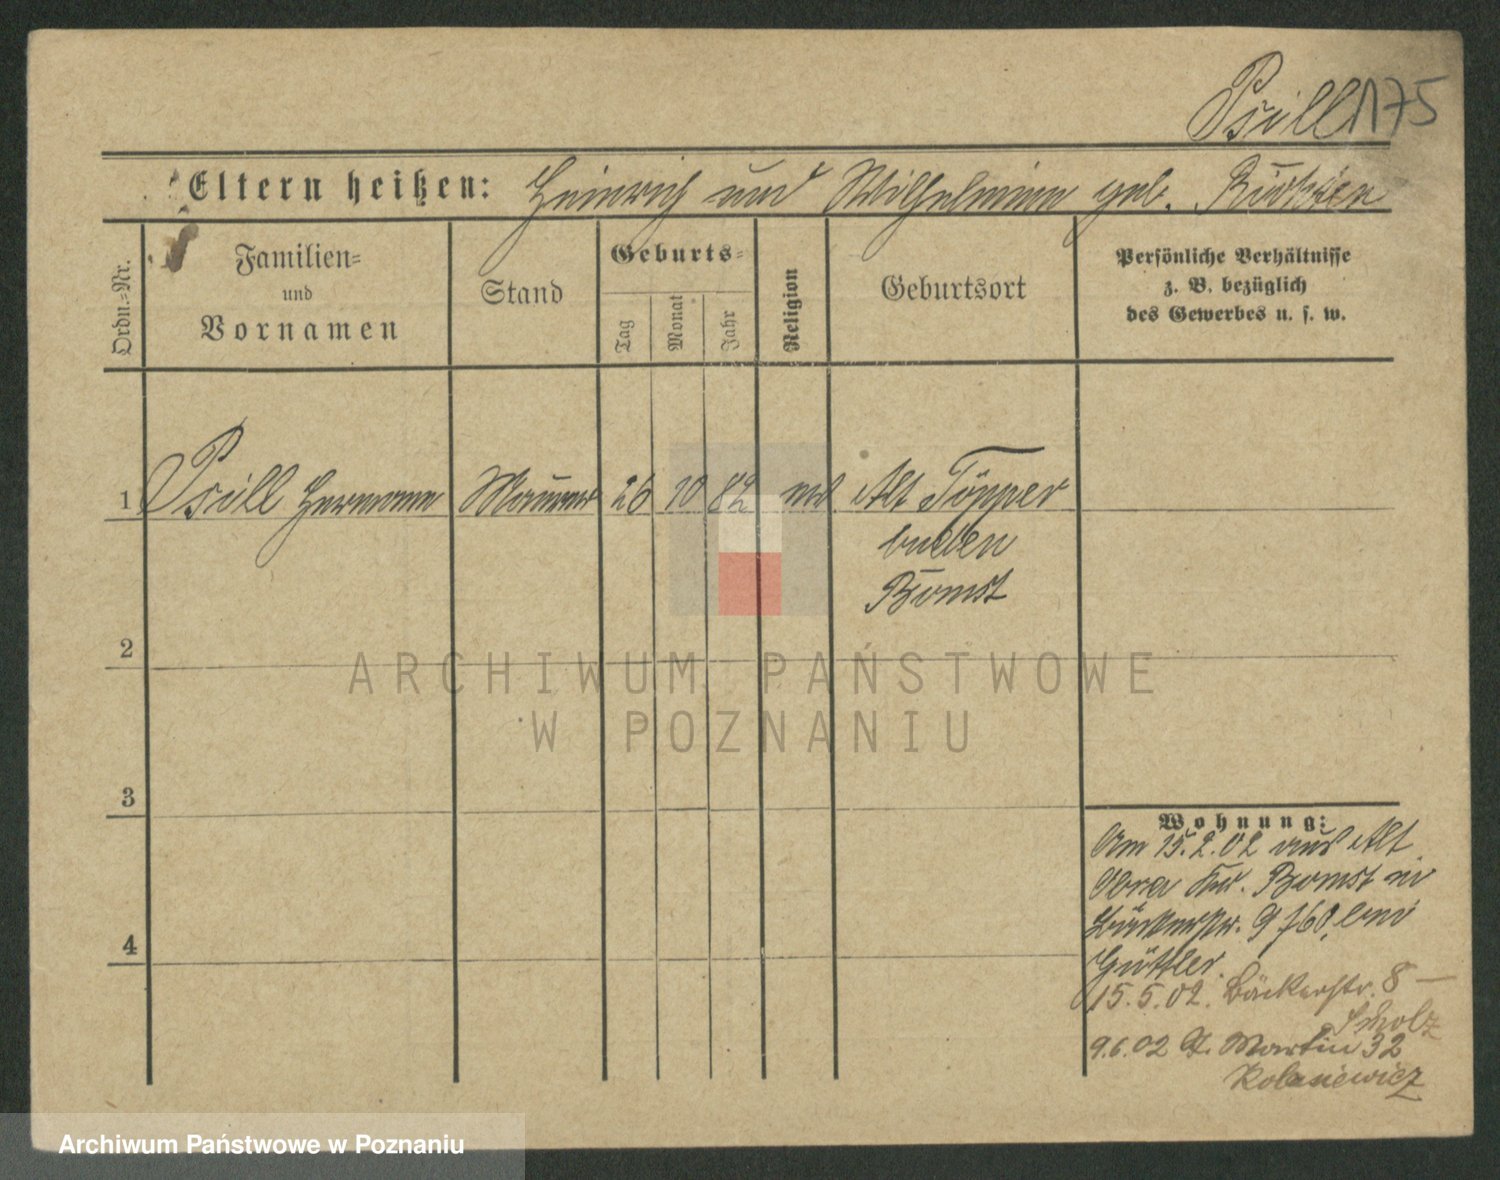 Psill 175
Eltern heißen: Heinrich und Wilhelmine geb.
Ordn.=Nr.
Familien=
und
Vornamen
Stand
Geburts=
Tag
Monat
Jahr
Religion
Geburtsort
Persönliche Verhältnisse
z. B. bezüglich
des Gewerbes u. s. w.
1 Psill Hermann Maurer 26 10 82 ev Alt Töpper
buden
Bomst
2
3
4
Wohnung:
Am 15.2.02 aus Alt
Obra Krs. Bomst in
Bäckerstr. 9 bei
Güttler.
15.5.02. Bäckerstr. 8 –
Scholz
9.6.02 St. Martin 32
Kolasiewicz
ARCHIWUM PAŃSTWOWE
W POZNANIU
Archiwum Państwowe w Poznaniu